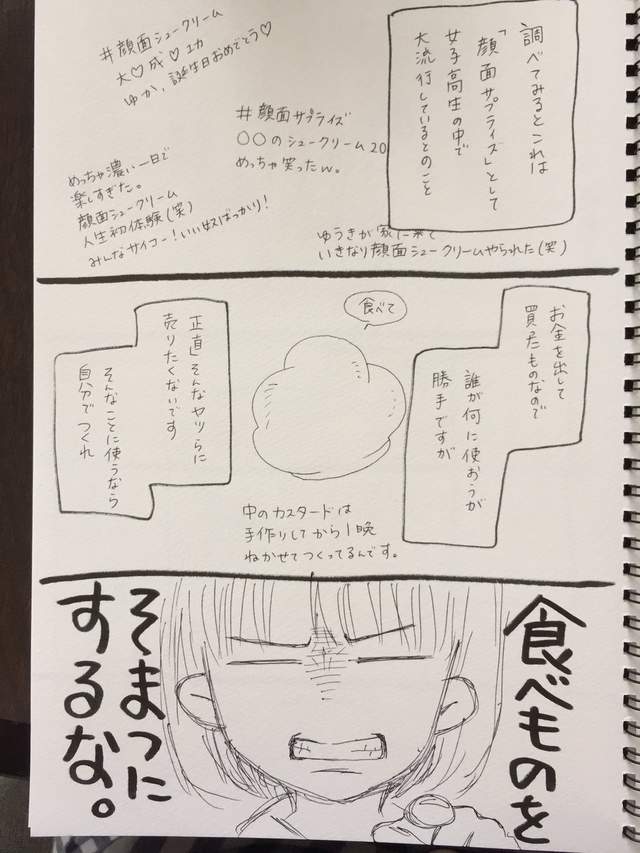 調べてみるとこれは
「顔面サプライズ」として
女子高生の中で
大流行しているとのこと
#顔面シュークリーム
大♡成♡ユカ
ゆか、誕生日おめでとう♡
#顔面サプライズ
〇〇のシュークリーム20
めっちゃ笑ったw。
めっちゃ濃い一日で
楽しすぎた。
顔面シュークリーム
人生初体験(笑)
みんなサイコー!いい奴ばっかり!
ゆうきが家に来て
いきなり顔面シュークリームやられた(笑)
お金を出して
買ったものなので
誰が何に使おうが
勝手ですが
食べて
中のカスタードは
手作りしてから1晩
ねかせてつくってるんです。
正直そんなヤツらに
売りたくないです
そんなことに使うなら
自分でつくれ
食べものを
そまつに
するな。